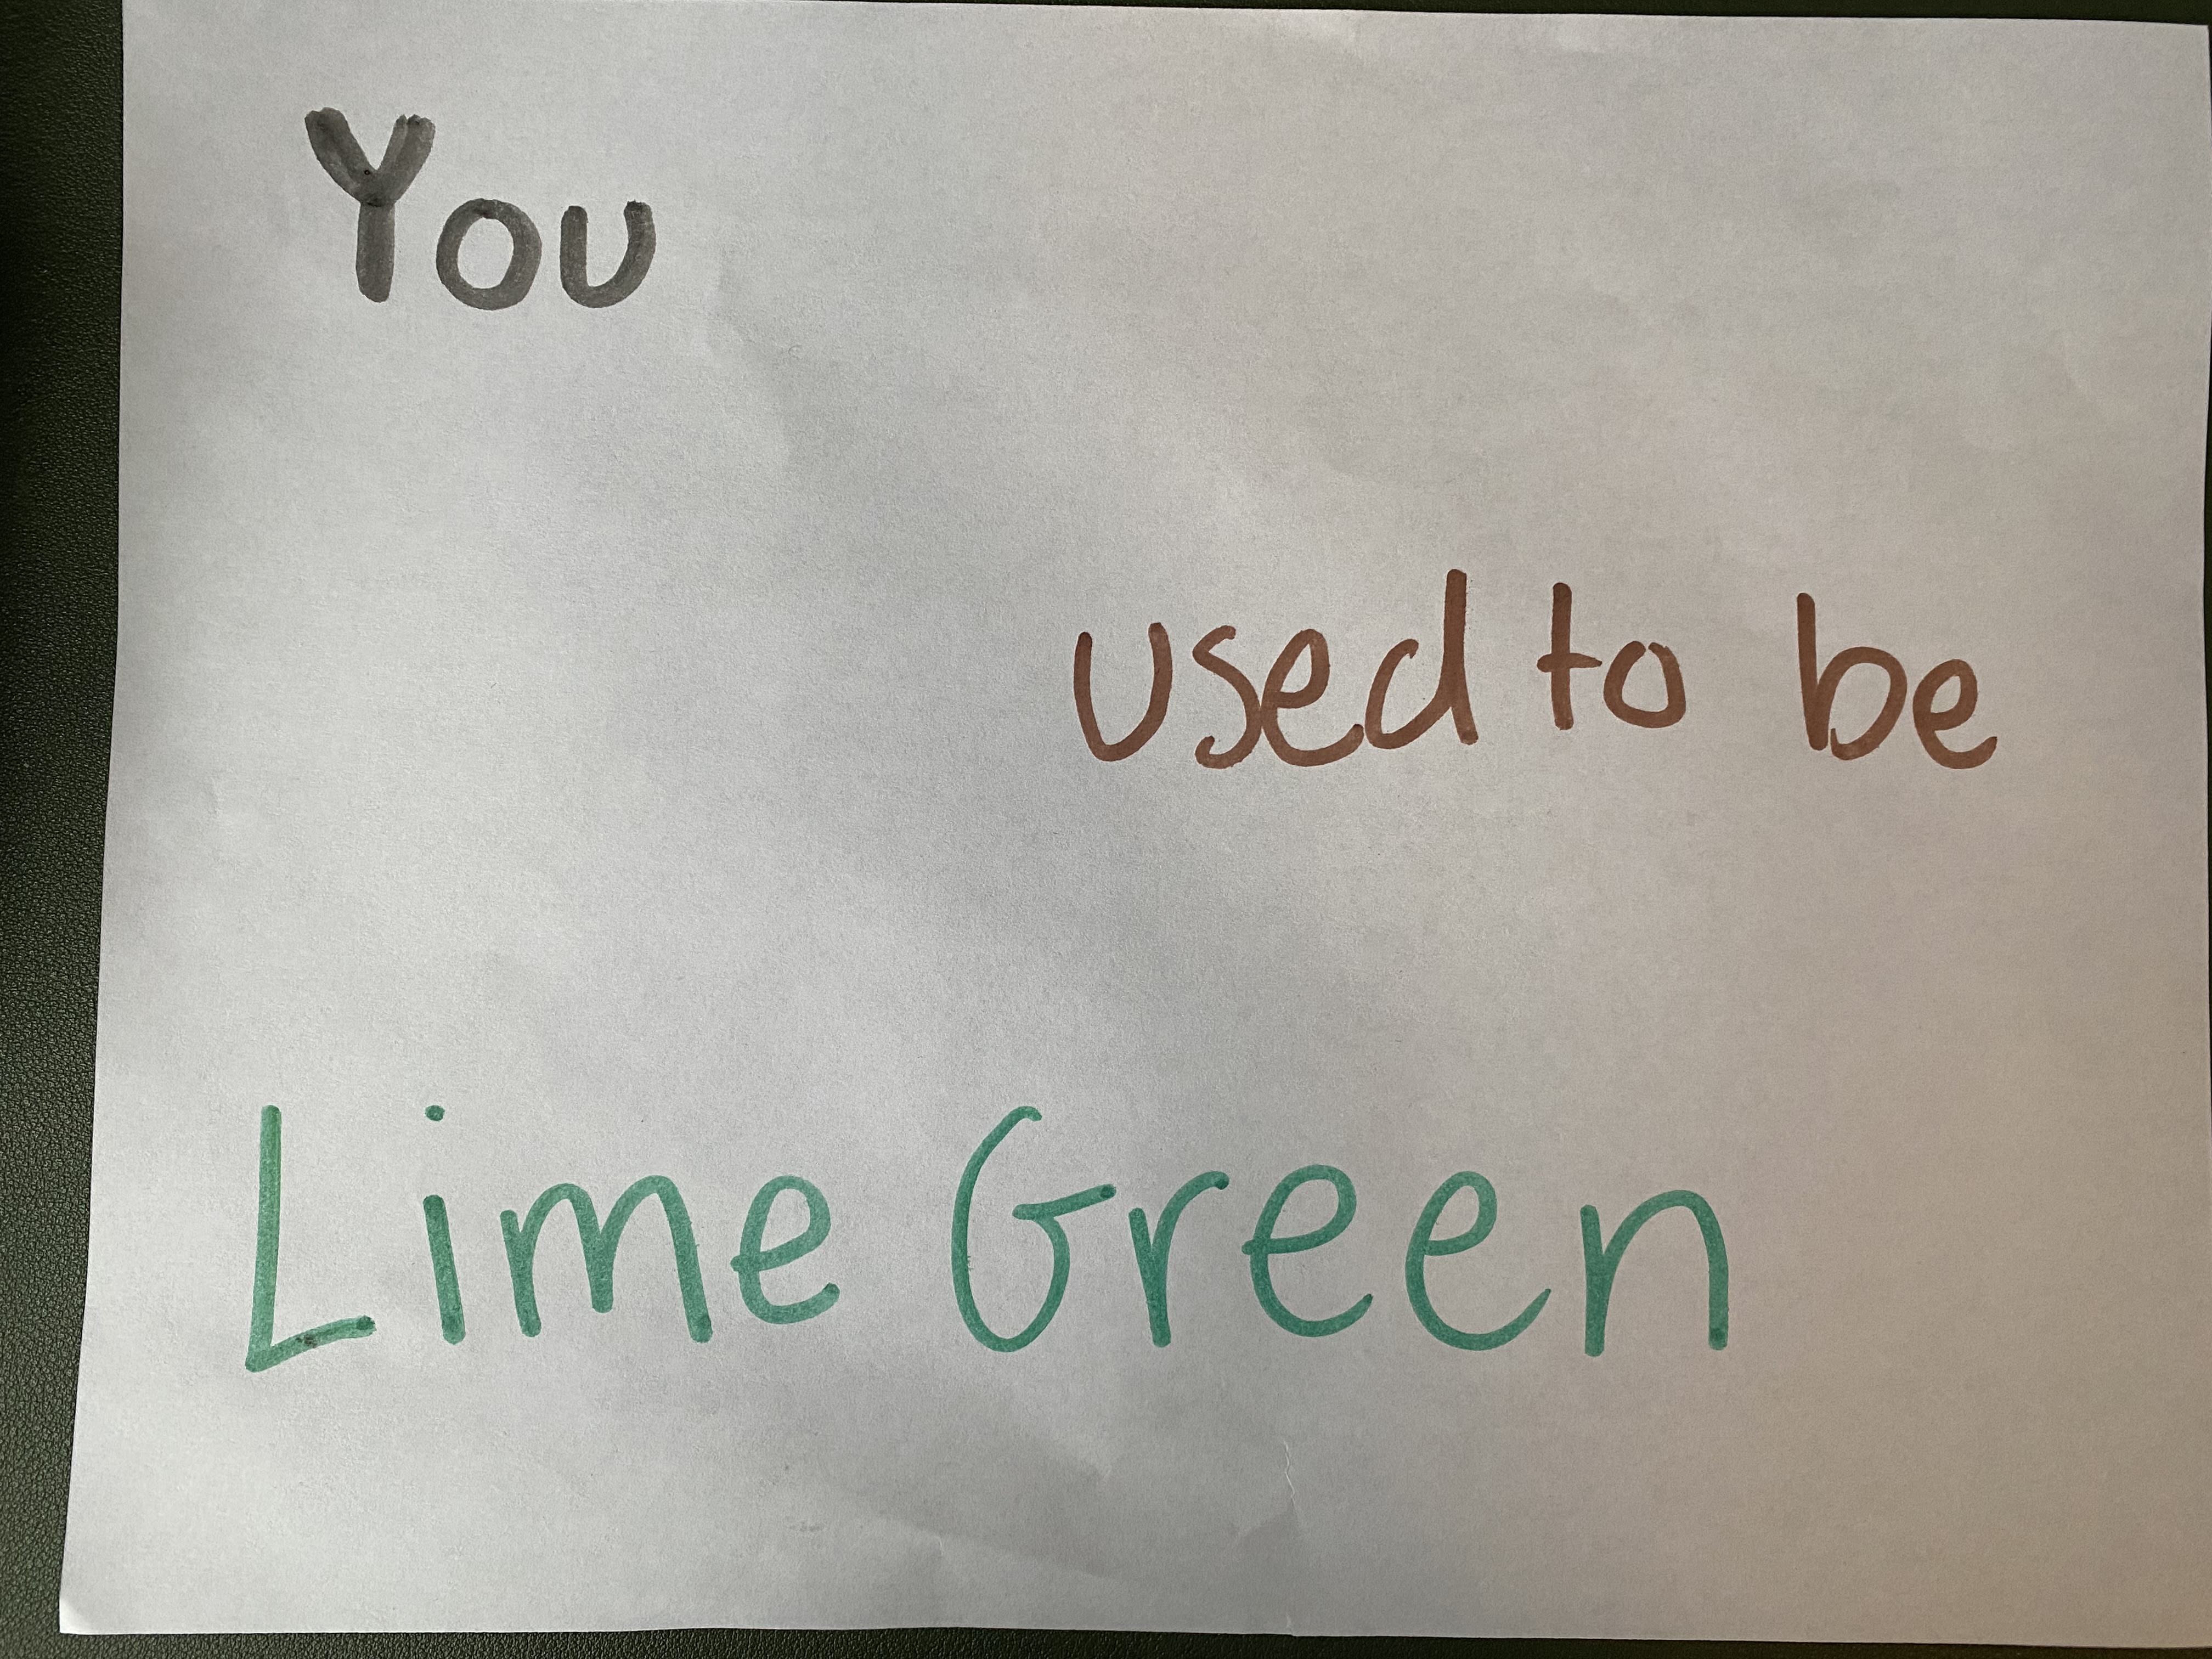 You
used to be
Lime Green